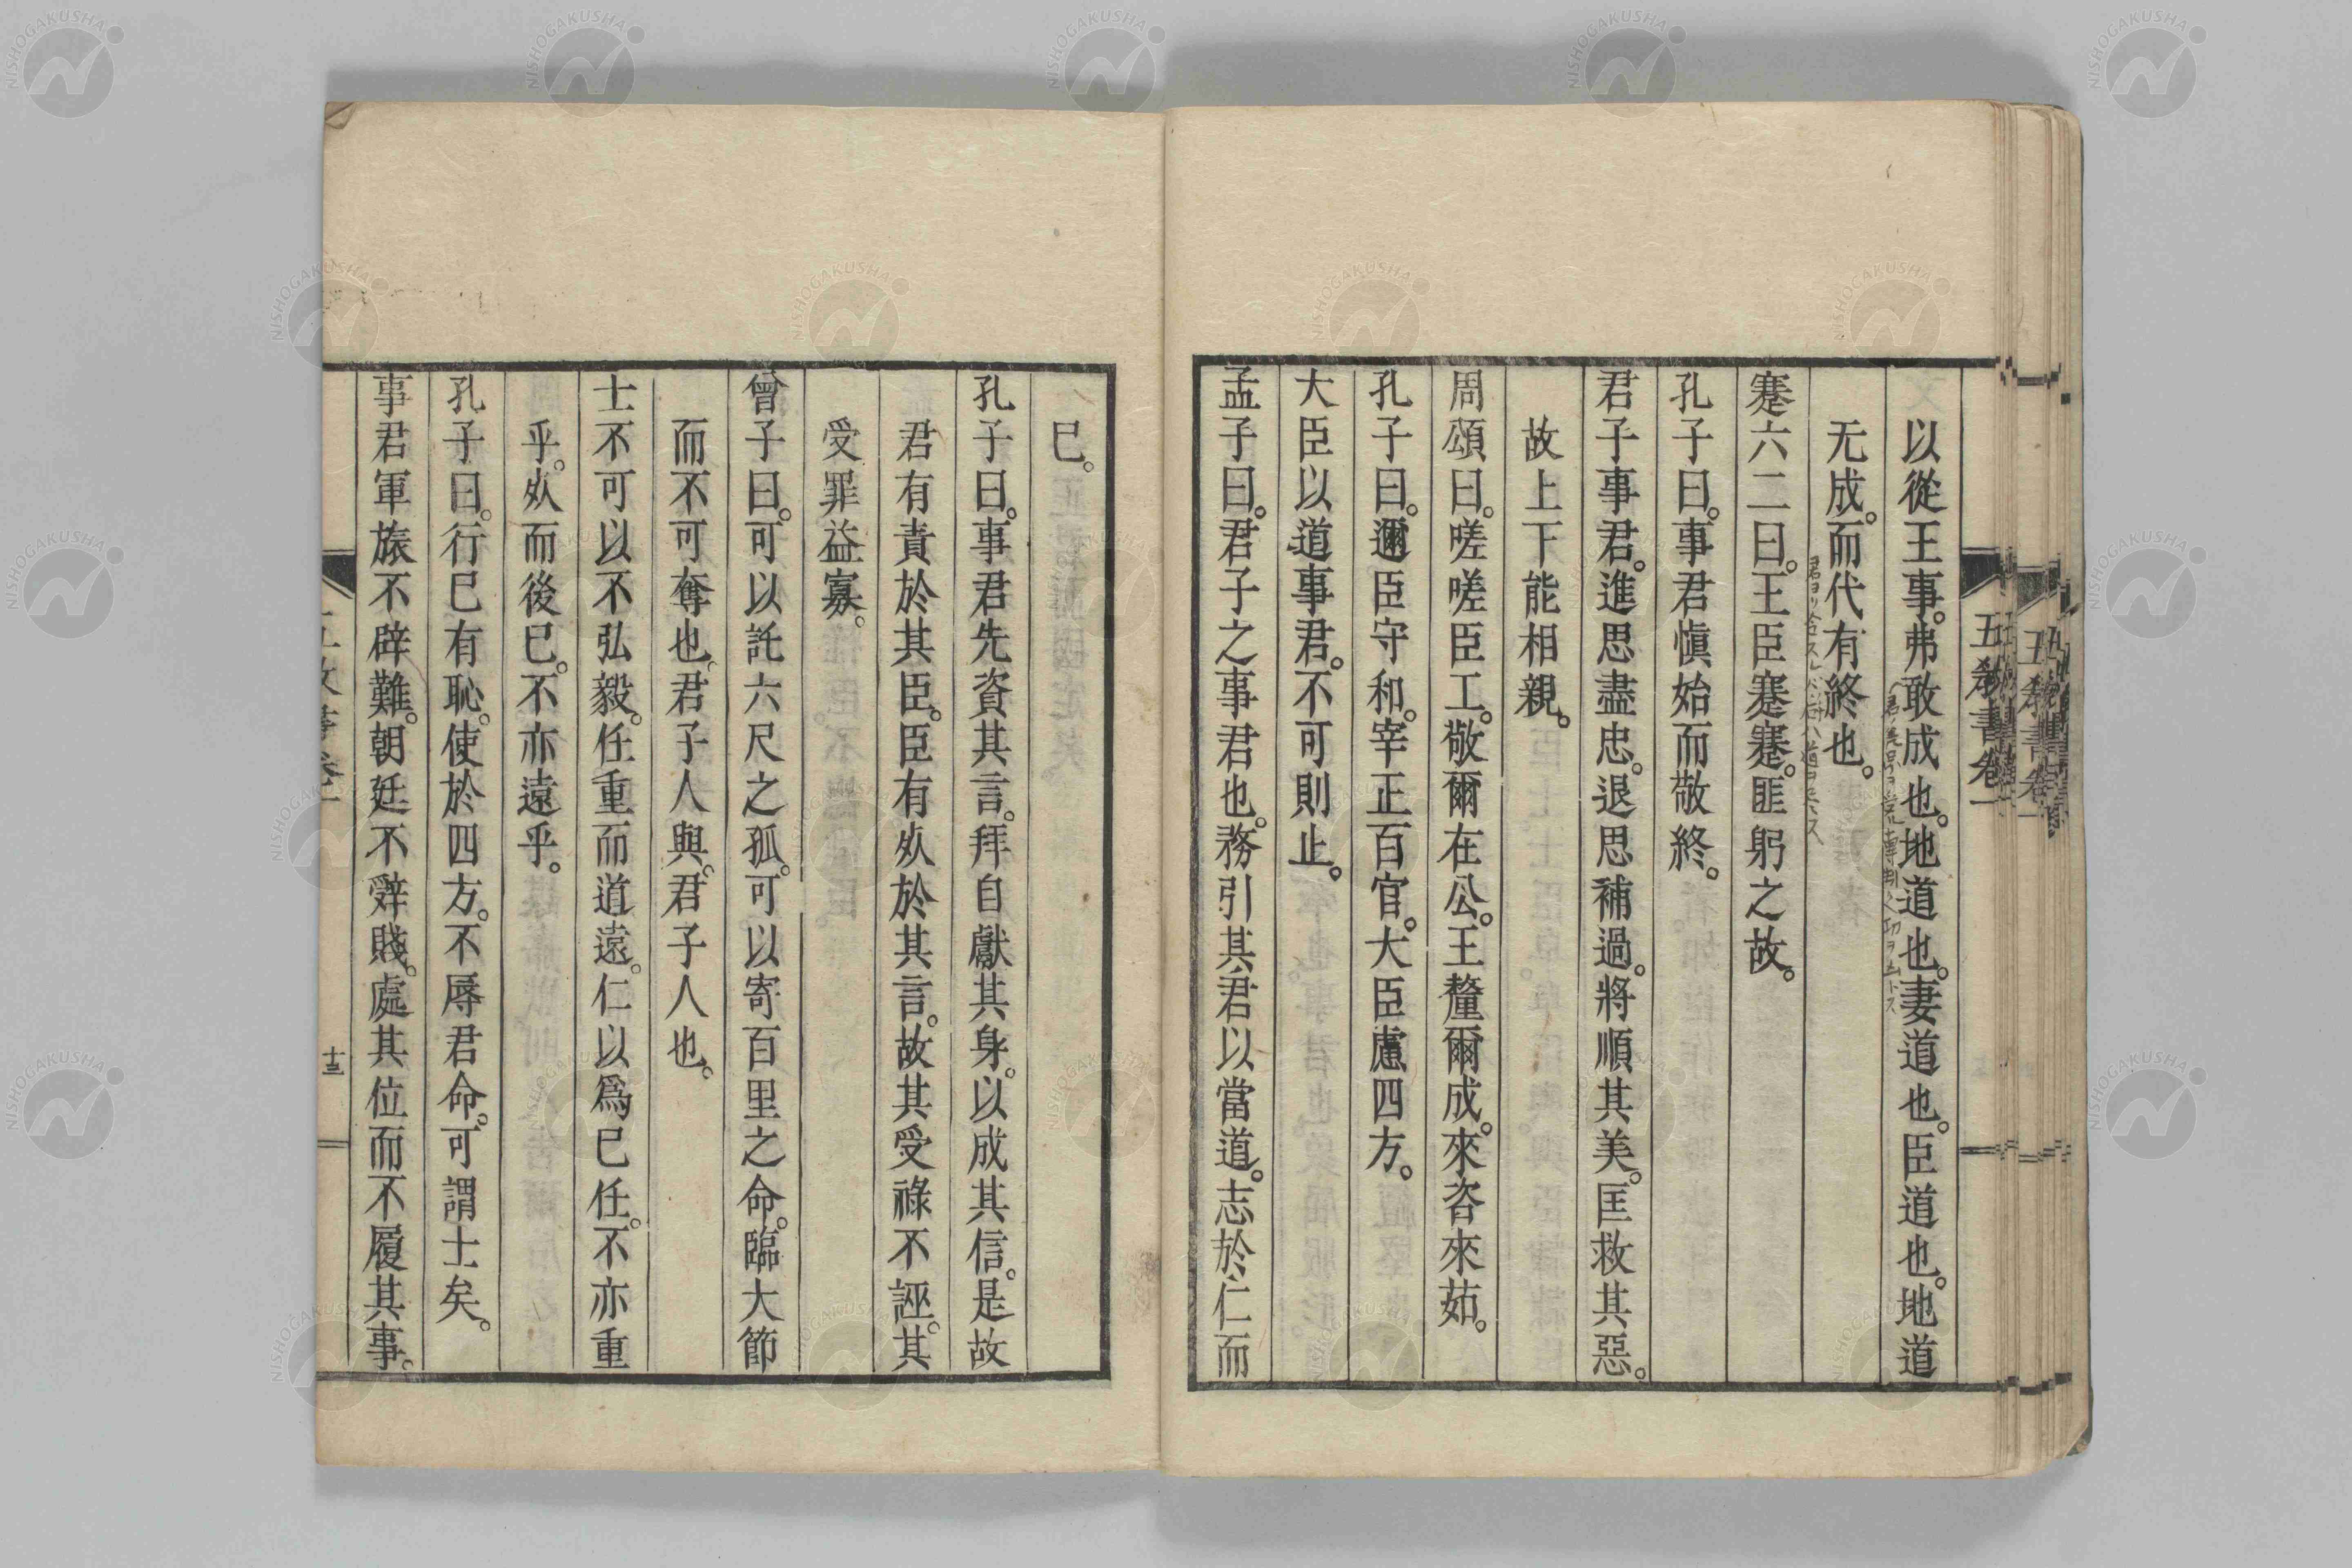 五教書卷一
以從王事。弗敢成也。地道也。妻道也。臣道也。地道
无成。而代有終也。
蹇六二曰。王臣蹇蹇。匪躬之故。
孔子曰。事君愼始而敬終。
君子事君。進思盡忠。退思補過。將順其美。匡救其惡。
故上下能相親。
周頌曰。嗟嗟臣工。敬爾在公。王釐爾成。來咨來茹。
孔子曰。邇臣守和。宰正百官。大臣慮四方。
大臣以道事君。不可則止。
孟子曰。君子之事君也。務引其君以當道。志於仁而
已。
孔子曰。事君先資其言。拜自獻其身。以成其信。是故
君有責於其臣。臣有㱔於其言。故其受祿不誣。其
受罪益寡。
曾子曰。可以託六尺之孤。可以寄百里之命。臨大節
而不可奪也。君子人與。君子人也。
士不可以不弘毅。任重而道遠。仁以爲己任。不亦重
乎。㱔而後已。不亦遠乎。
孔子曰。行己有恥。使於四方。不辱君命。可謂士矣。
事君軍旅不辟難。朝廷不辭賤。處其位而不履其事。
十三
NISHOGAKUSHA